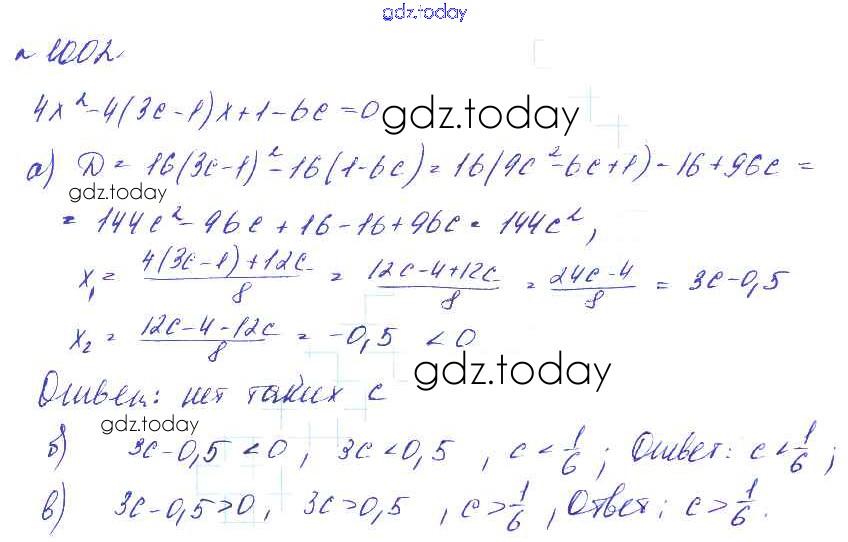 gdz.today
№ 1002
4x² - 4(3c-1)x + 1 - 6c = 0 gdz.today
а) D = 16(3c-1)² - 16(1-6c) = 16(9c² - 6c + 1) - 16 + 96c =
gdz.today
= 144c² - 96c + 16 - 16 + 96c = 144c²,
x₁ = 4(3c-1)+12c/8 = 12c-4+12c/8 = 24c-4/8 = 3c-0,5
x₂ = 12c-4-12c/8 = -0,5 < 0
gdz.today
Ответ: нет таких c
gdz.today
б) 3c-0,5 < 0, 3c < 0,5, c < 1/6; Ответ: c < 1/6;
в) 3c-0,5 > 0, 3c > 0,5, c > 1/6, Ответ: c > 1/6.